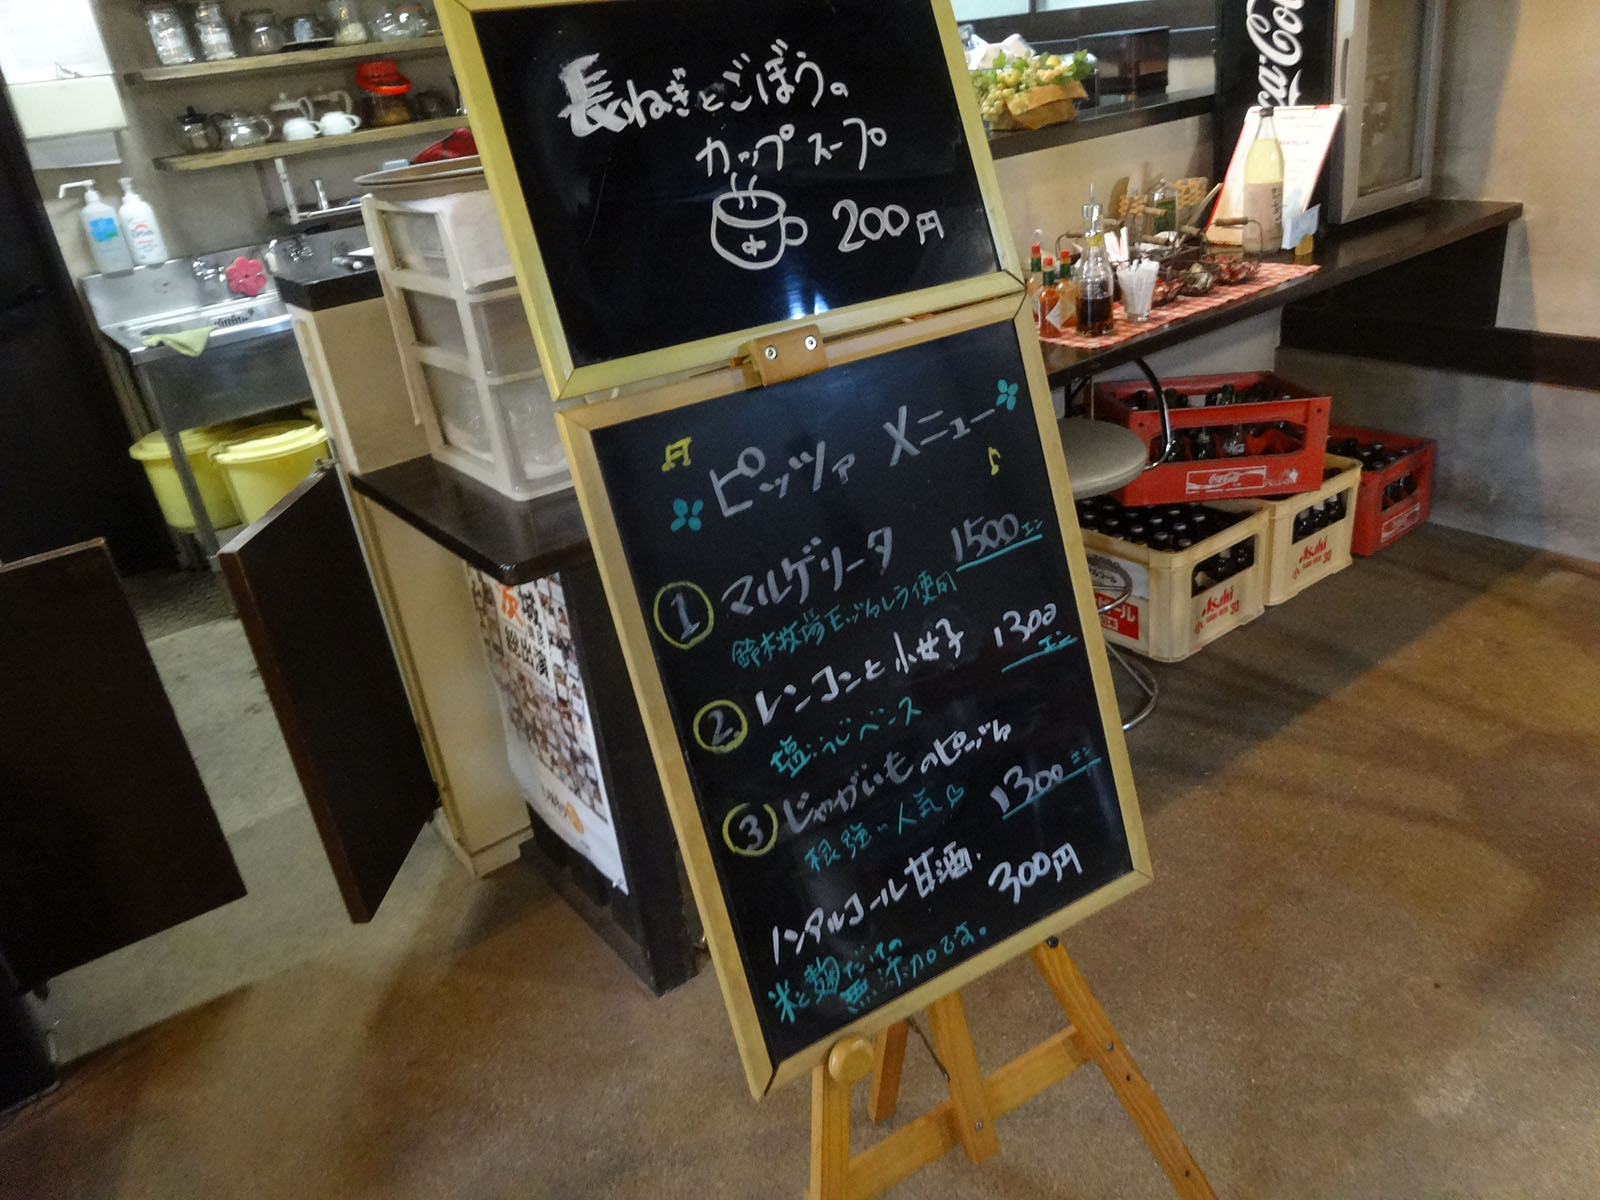 長ねぎとごぼうの
カップスープ
200円
ピッツァ メニュー
① マルゲリータ 1500エン
鈴木牧場モッツァレラ使用
② レンコンと小女子 1300エン
塩こうじベース
③ じゃがいものピッツァ 1300エン
根強い人気
ノンアルコール甘酒 300円
米と麹だけの
無添加です。
Coca-Cola
Asahi
30
Asahi
30
総出演